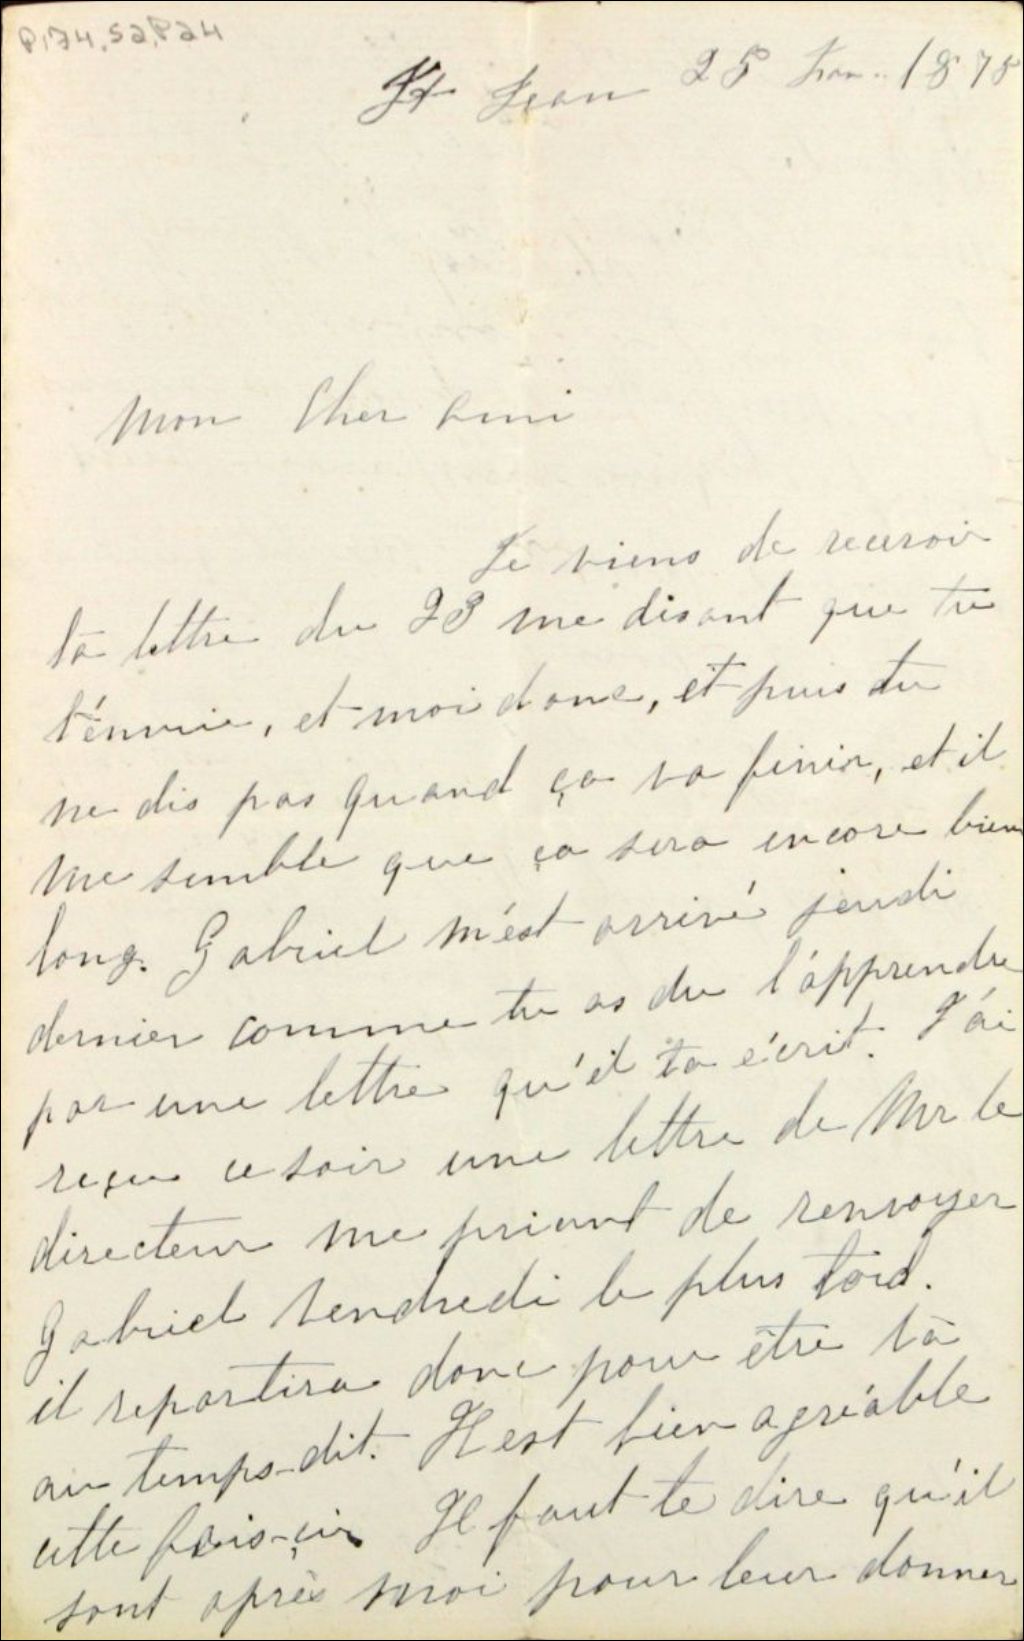 P174,S2,P24
St Jean 25 Jan. 1878
Mon Cher Ami
Je viens de recevoir
ta lettre du 23 me disant que tu
t'ennuie, et moi donc, et puis tu
ne dis pas quand ça va finir, et il
me semble que ça sera encore bien
long. Gabriel m'est arrivé jeudi
dernier comme tu as du l'apprendre
par une lettre qu'il ta écrit. J'ai
reçu ce soir une lettre de Mr le
directeur me priant de renvoyer
Gabriel vendredi le plus tard.
il repartira donc pour être là
au temps-dit. Il est bien agréable
cette fois-çi Il faut te dire qu'il
sont après moi pour leur donner